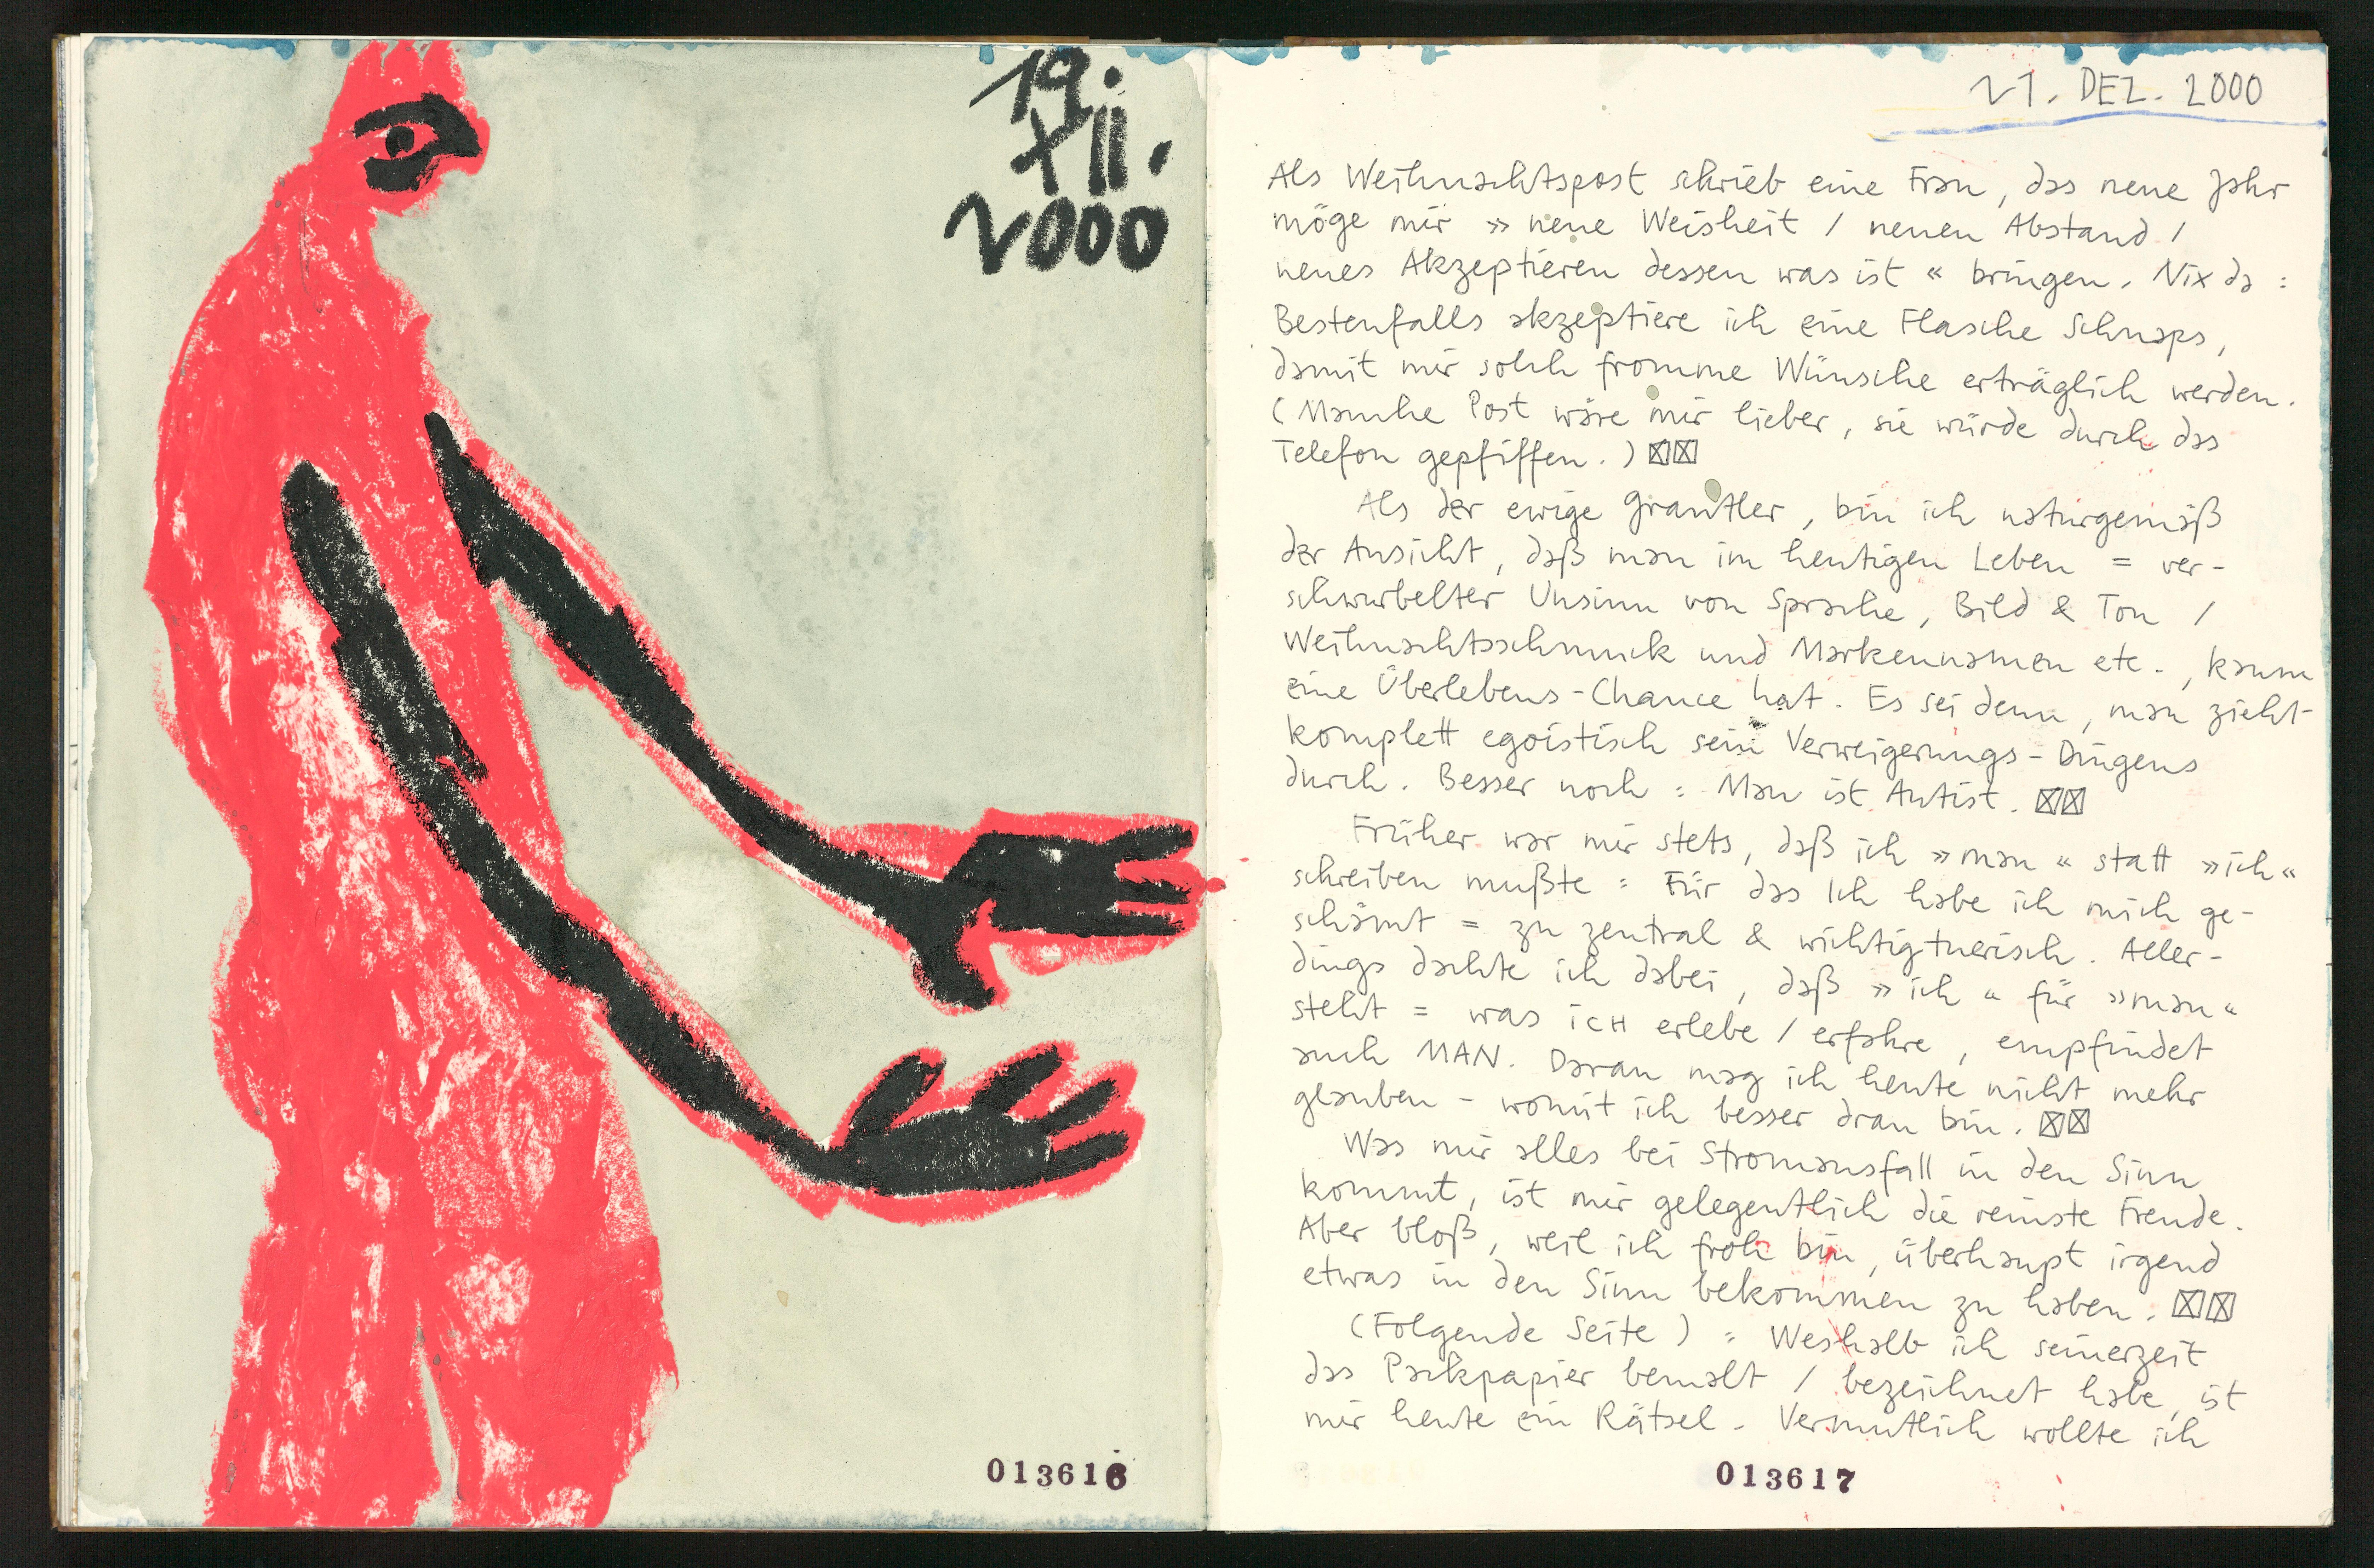 19.
XII.
2000
013616
21. DEZ. 2000
Als Weihnachtspost schrieb eine Frau, das neue Jahr
möge mir » neue Weisheit / neuen Abstand /
neues Akzeptieren dessen was ist « bringen. Nix da :
Bestenfalls akzeptiere ich eine Flasche Schnaps,
damit mir solch fromme Wünsche erträglich werden.
(Manche Post wäre mir lieber, sie würde durch das
Telefon gepfiffen.) ☒☒
Als der ewige Grantler, bin ich naturgemäß
der Ansicht, daß man im heutigen Leben = ver-
schwurbelter Unsinn von Sprache, Bild & Ton /
Weihnachtsschmuck und Markennamen etc., kaum
eine Überlebens-Chance hat. Es sei denn, man zieht
komplett egoistisch sein Verweigerungs-Dingens
durch. Besser noch : Man ist Autist. ☒☒
Früher war mir stets, daß ich »man« statt »ich«
schreiben mußte : Für das Ich habe ich mich ge-
schämt = zu zentral & wichtigtuerisch. Aller-
dings dachte ich dabei, daß »ich« für »man«
steht = was iCH erlebe / erfahre, empfindet
auch MAN. Daran mag ich heute nicht mehr
glauben - womit ich besser dran bin. ☒☒
Was mir alles bei Stromausfall in den Sinn
kommt, ist mir gelegentlich die reinste Freude.
Aber bloß, weil ich froh bin, überhaupt irgend
etwas in den Sinn bekommen zu haben. ☒☒
(Folgende Seite) : Weshalb ich seinerzeit
das Packpapier bemalt / bezeichnet habe, ist
mir heute ein Rätsel. Vermutlich wollte ich
013617